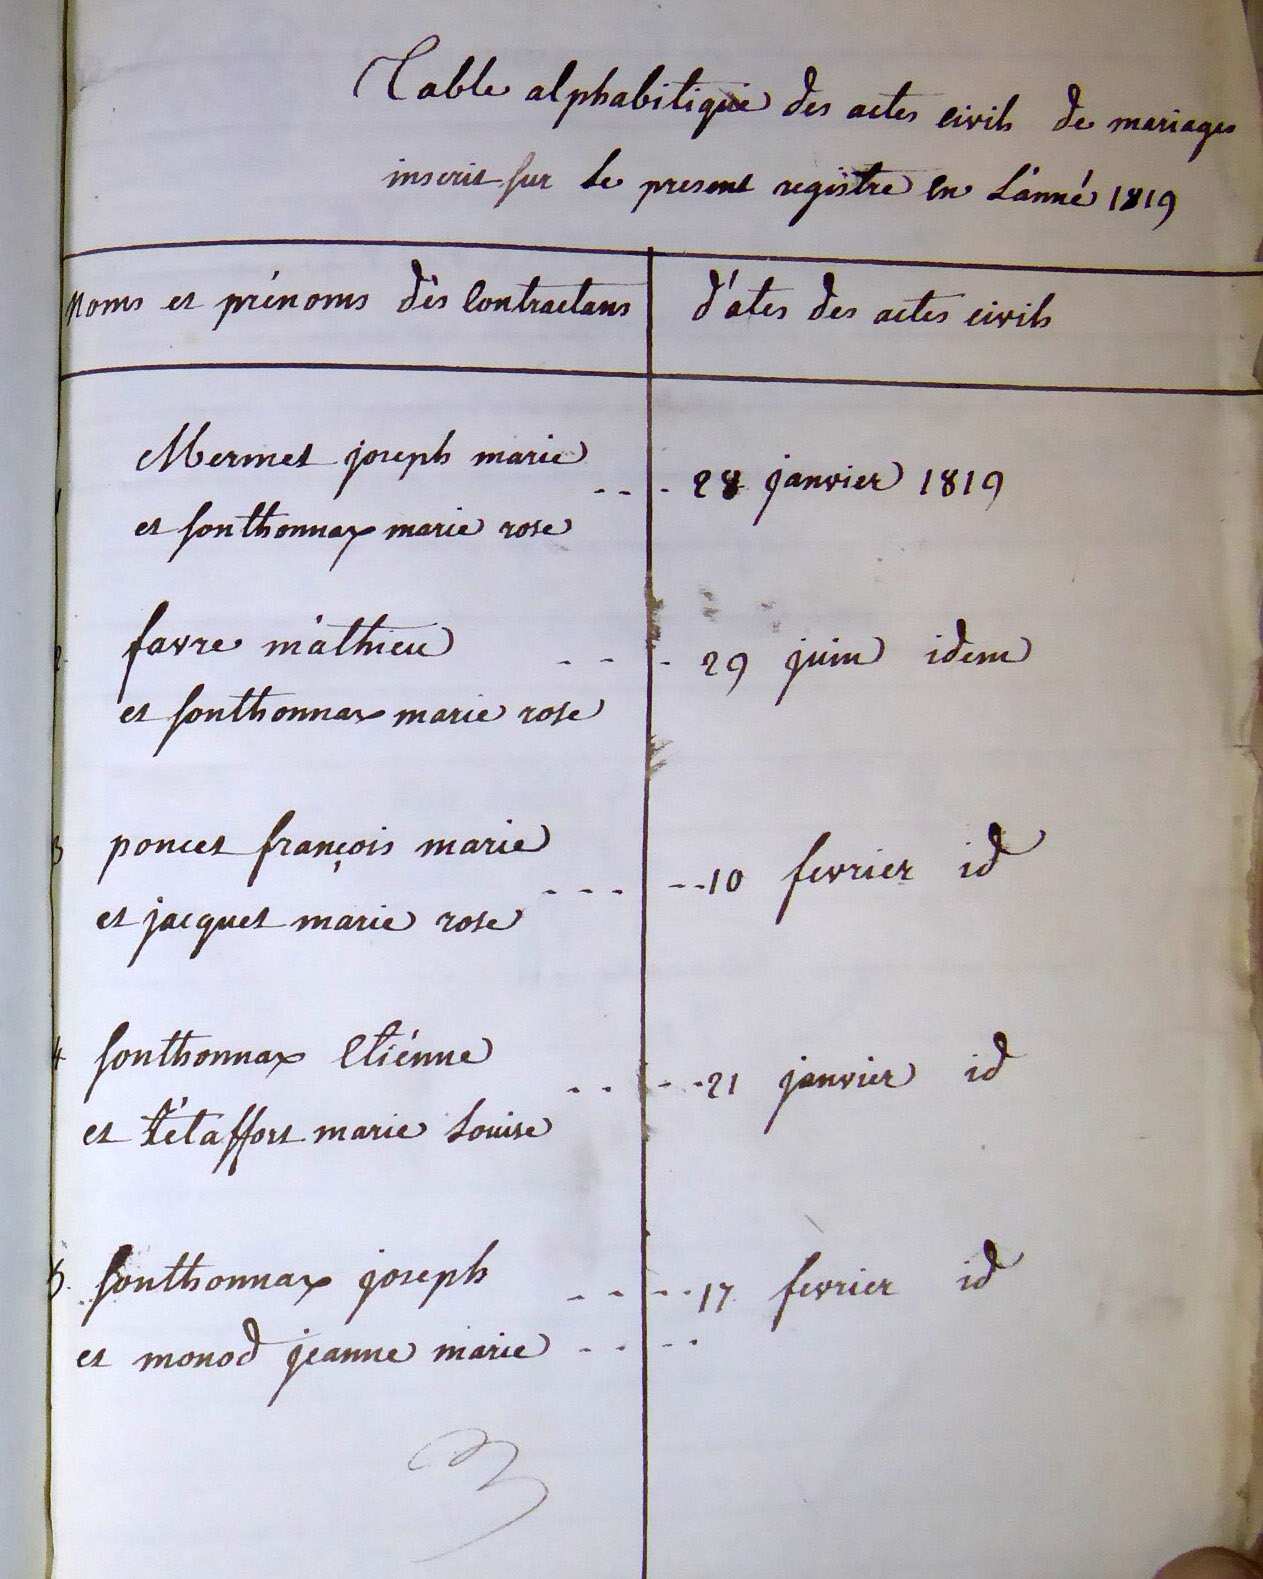 Table alphabitique des actes civils de mariages
inscrit sur le present registre en L'anné 1819
Noms et prénoms dès Contractans
d'ates des actes civils
1
Mermet joseph marie
et sonthonnax marie rose
28 janvier 1819
2
favre mathieu
et sonthonnax marie rose
29 juin idem
3
poncet françois marie
et jacquet marie rose
10 fevrier id
4
sonthonnax Etiénne
et tétaffort marie Louise
21 janvier id
5.
sonthonnax joseph
et monod jeanne marie
17 fevrier id